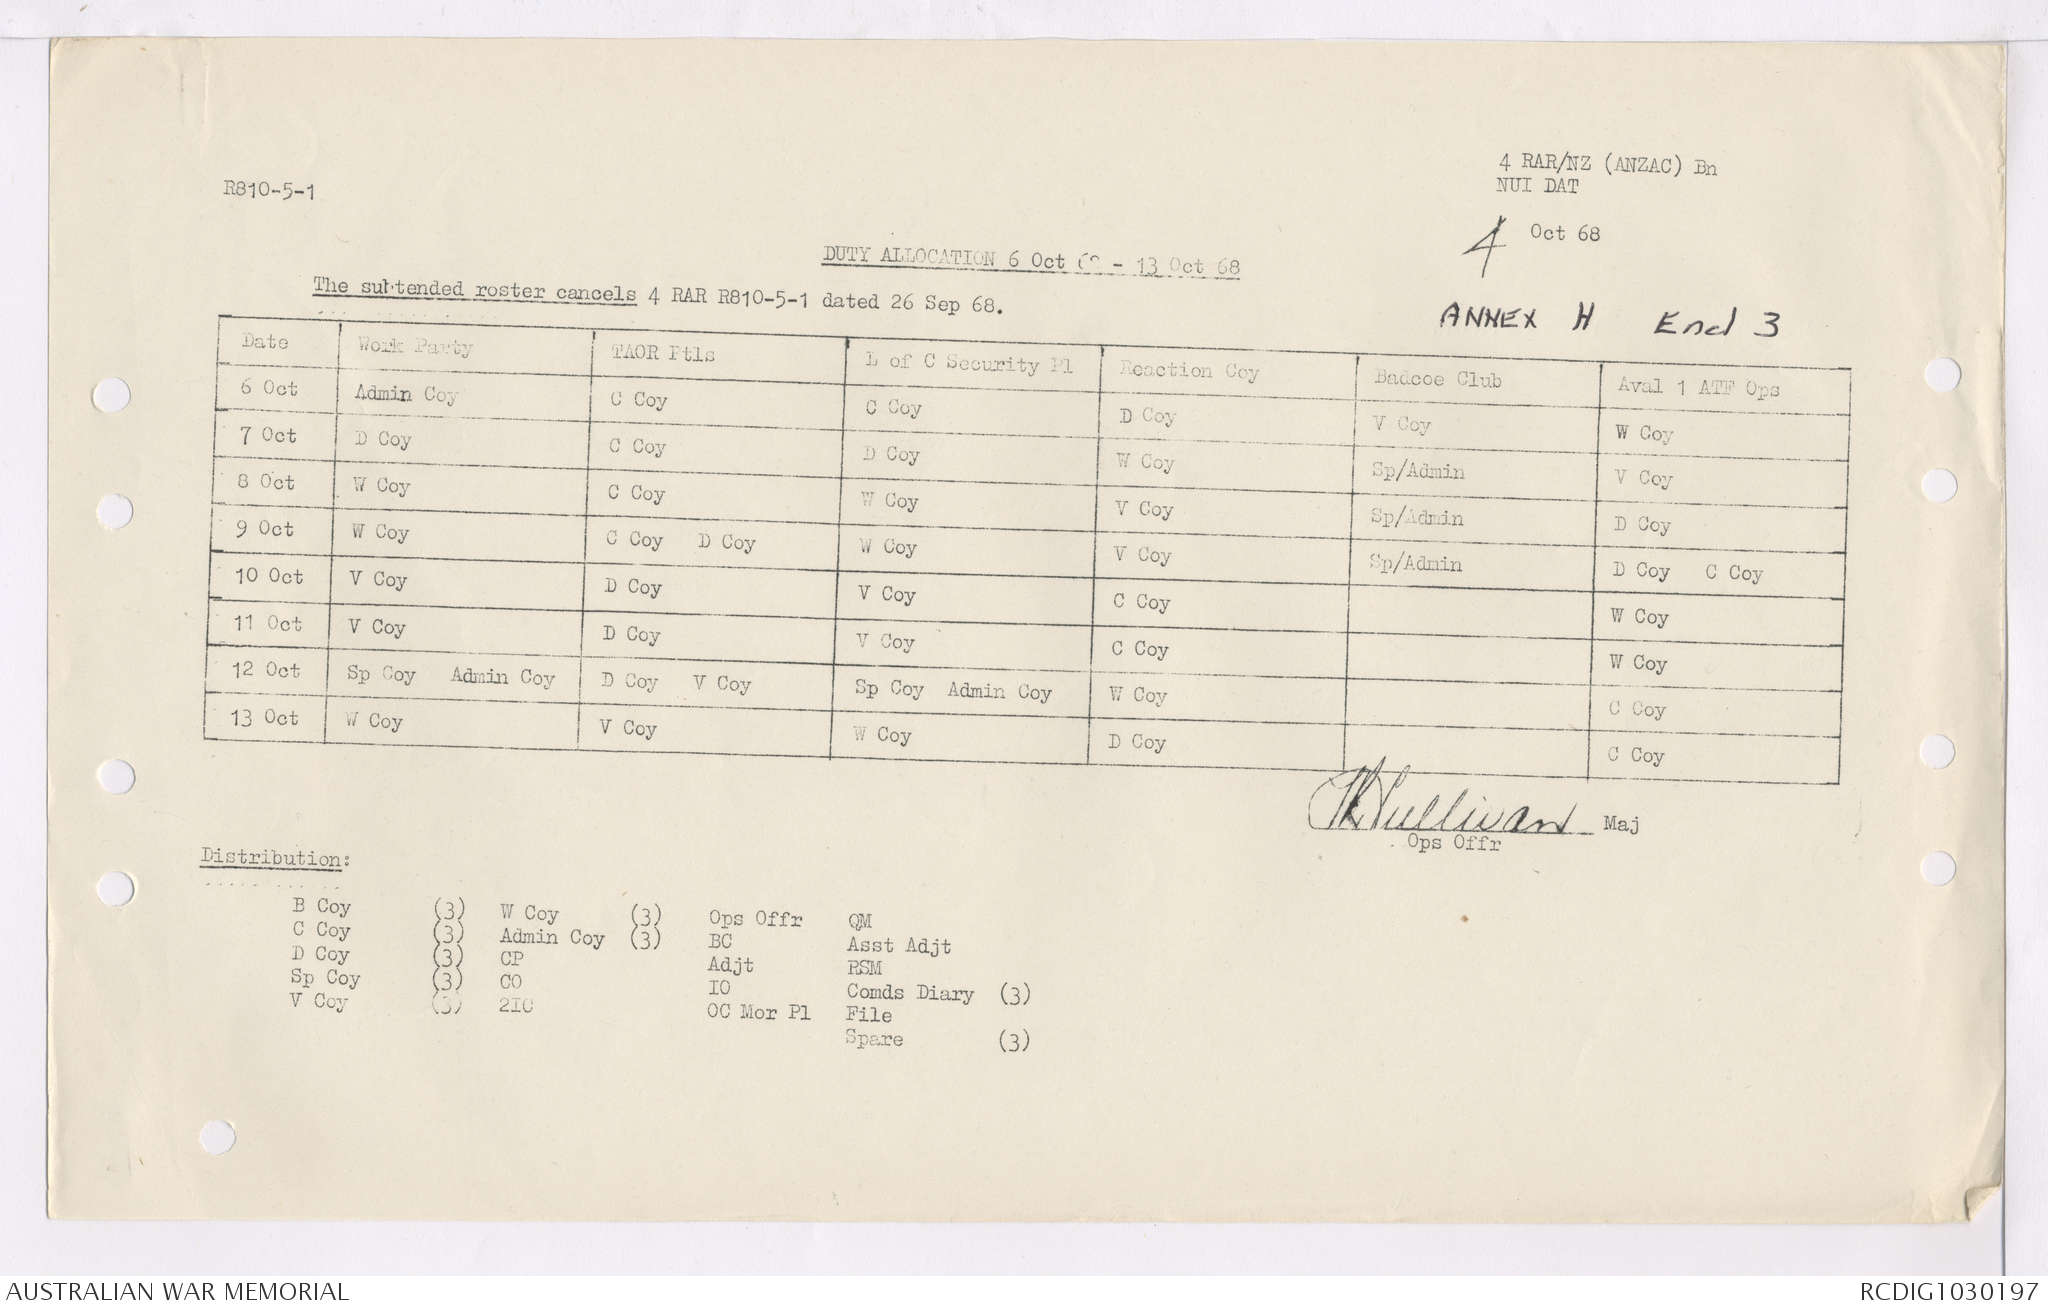 4 RAR/NZ (ANZAC) Bn
NUI DAT
R810-5-1
4 Oct 68
DUTY ALLOCATION 6 Oct 68 - 13 Oct 68
The subtended roster cancels 4 RAR R810-5-1 dated 26 Sep 68.
ANNEX H Encl 3
Date Work Party TAOR Ptls L of C Security Pl Reaction Coy Badcoe Club Aval 1 ATF Ops
6 Oct Admin Coy C Coy C Coy D Coy V Coy W Coy
7 Oct D Coy C Coy D Coy W Coy Sp/Admin V Coy
8 Oct W Coy C Coy W Coy V Coy Sp/Admin D Coy
9 Oct W Coy C Coy D Coy W Coy V Coy Sp/Admin D Coy C Coy
10 Oct V Coy D Coy V Coy C Coy W Coy
11 Oct V Coy D Coy V Coy C Coy W Coy
12 Oct Sp Coy Admin Coy D Coy V Coy Sp Coy Admin Coy W Coy C Coy
13 Oct W Coy V Coy W Coy D Coy C Coy
Sullivan Maj
Ops Offr
Distribution:
B Coy (3) W Coy (3) Ops Offr QM
C Coy (3) Admin Coy (3) BC Asst Adjt
D Coy (3) CP Adjt RSM
Sp Coy (3) CO IO Comds Diary (3)
V Coy (3) 2IC OC Mor Pl File
Spare (3)
AUSTRALIAN WAR MEMORIAL RCDIG1030197